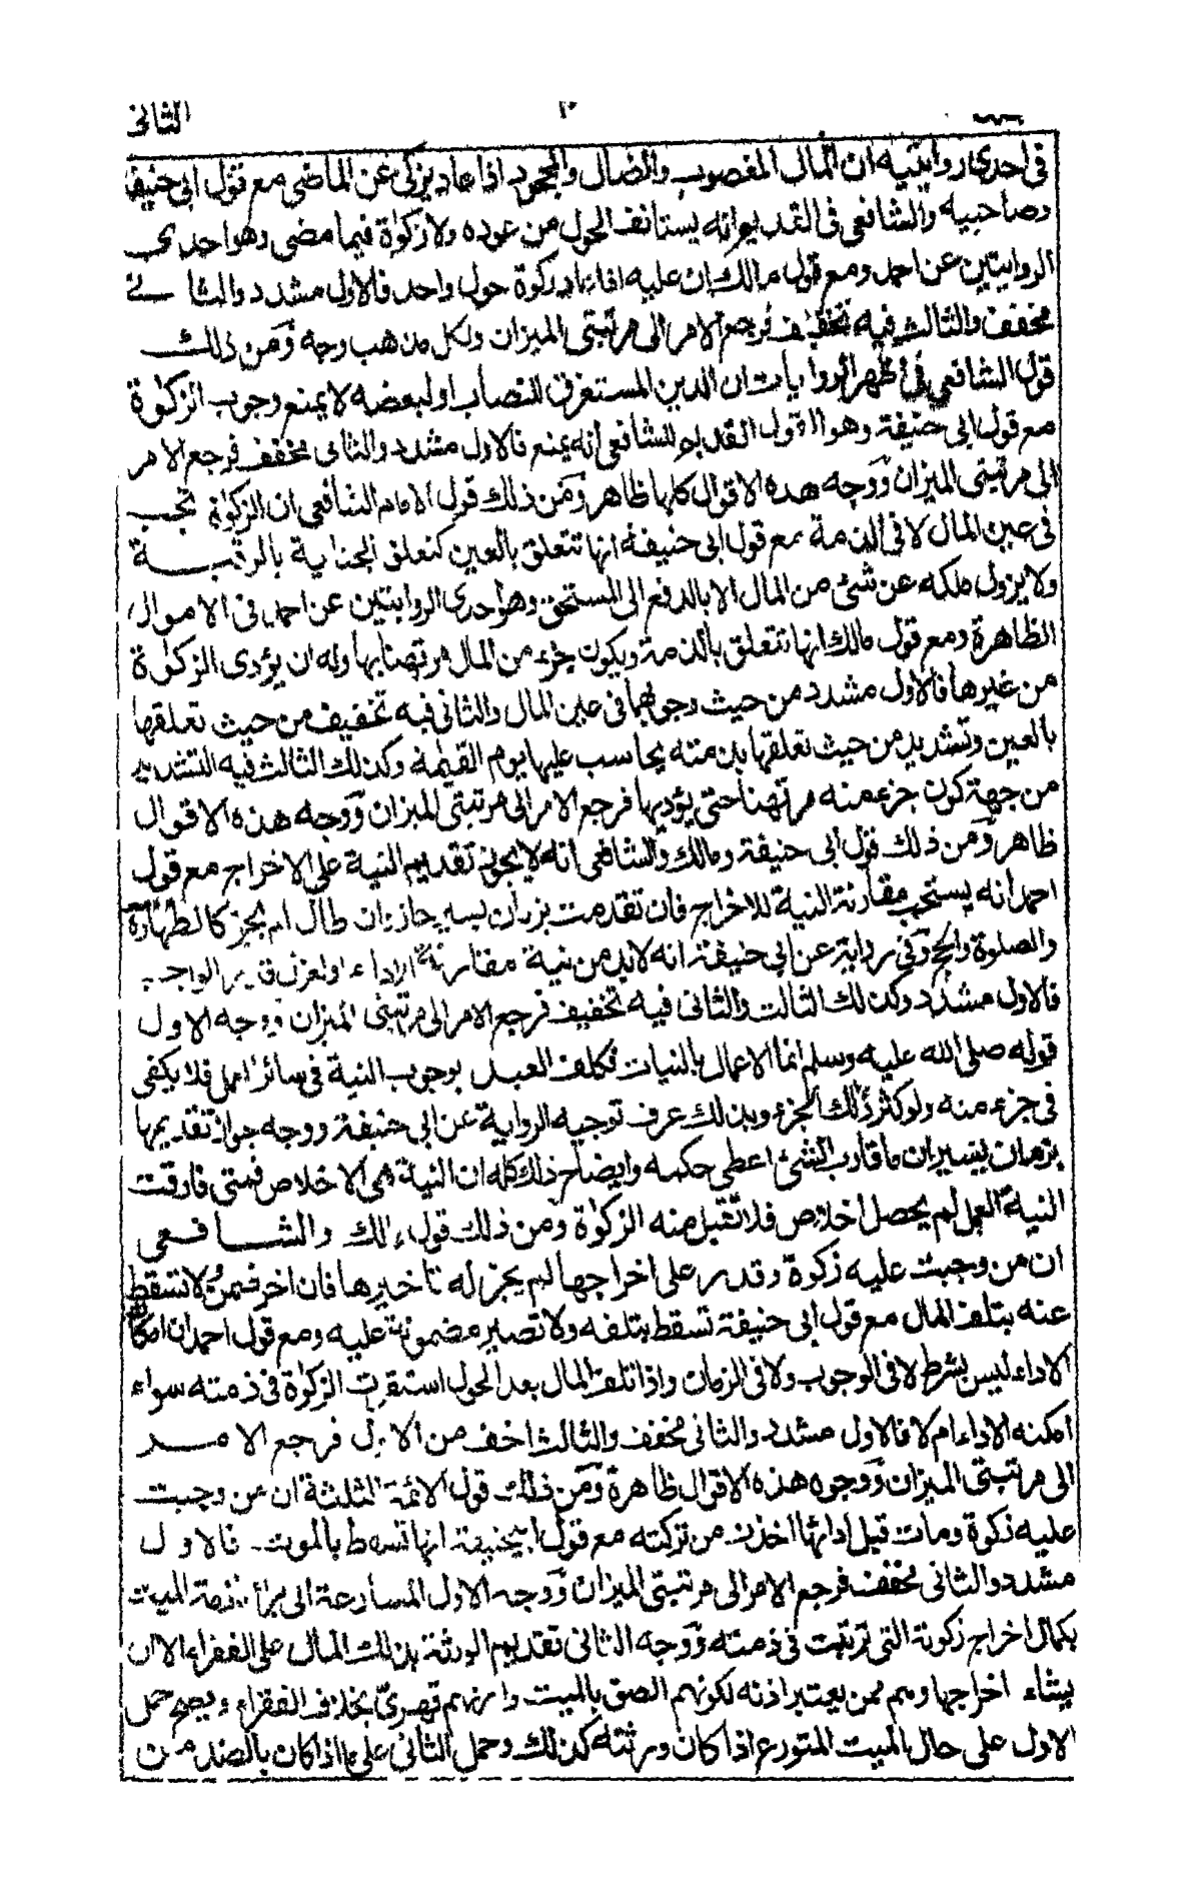 الثانى
٣
فى احدى روايتيه ان المال المغصوب والضال والمجحود اذا عاد يزكى عن الماضى مع قول ابى حنيفة
وصاحبيه والشافعى فى القديم انه يستانف الحول من عوده ولا زكوٰة فيما مضى وهو احدى
الروايتين عن احمد ومع قول مالك ان عليه اذا عاد زكوة حول واحد فالاول مشدد والثانى
مخفف والثالث فيه تخفيف فرجع الامر الى مرتبتى الميزان ولكل مذهب وجه ومن ذلك
قول الشافعى فى اظهر الروايات ان الدين المستغرق للنصاب او لبعضه لا يمنع وجوب الزكوٰة
مع قول ابى حنيفة وهو القول القديم للشافعى انه يمنع فالاول مشدد والثانى مخفف فرجع الامر
الى مرتبتى الميزان ووجه هذه الاقوال كلها ظاهر ومن ذلك قول الامام الشافعى ان الزكوٰة تجب
فى عين المال لا فى الذمة مع قول ابى حنيفة انها تتعلق بالعين كتعلق الجناية بالرقبة
ولا يزول ملكه عن شئ من المال الا بالدفع الى المستحق وهو احدى الروايتين عن احمد فى الاموال
الظاهرة ومع قول مالك انها تتعلق بالذمة ويكون جزء من المال مرتهنا بها وله ان يؤدى الزكوٰة
من غيرها فالاول مشدد من حيث وجوبها فى عين المال والثانى فيه تخفيف من حيث تعلقها
بالعين وتشديد من حيث تعلقها بذمته يحاسب عليها يوم القيمة وكذلك الثالث فيه التشديد
من جهة كون جزء منه مرتهنا حتى يؤديها فرجع الامر الى مرتبتى الميزان ووجه هذه الاقوال
ظاهر ومن ذلك قول ابى حنيفة ومالك والشافعى انه لا يجوز تقديم النية على الاخراج مع قول
احمد انه يستحب مقارنة النية للاخراج فان تقدمت بزمان يسير جاز وان طال لم يجز كالطهارة
والصلوة والحج وفى رواية عن ابى حنيفة انه لابد من نية مقارنة للاداء او لعزل قدر الواجب
فالاول مشدد وكذلك الثالث والثانى فيه تخفيف فرجع الامر الى مرتبتى الميزان ووجه الاول
قوله صلى الله عليه وسلم انما الاعمال بالنيات فكلف العبد بوجوب النية فى سائر العمل فلا يكفى
فى جزء منه ولو كثر ذلك الجزء وبذلك عرف توجيه الرواية عن ابى حنيفة ووجه جواز تقديمها
بزمان يسير ان ما قارب الشئ اعطى حكمه وايضاح ذلك كله ان النية هى الاخلاص فمتى فارقت
النية العمل لم يحصل اخلاص فلا تقبل منه الزكوٰة ومن ذلك قول مالك والشافعى
ان من وجبت عليه زكوة وقدر على اخراجها لم يجز له تاخيرها فان اخر ضمن ولا تسقط
عنه بتلف المال مع قول ابى حنيفة تسقط بتلفه ولا تصير مضمونة عليه ومع قول احمد ان امكان
الاداء ليس بشرط لا فى الوجوب ولا فى الزمان واذا تلف المال بعد الحول استقرت الزكوٰة فى ذمته سواء
امكنه الاداء ام لا فالاول مشدد والثانى مخفف والثالث اخف من الاول فرجع الامر
الى مرتبتى الميزان ووجوه هذه الاقوال ظاهرة ومن ذلك قول الائمة الثلثة ان من وجبت
عليه زكوة ومات قبل ادائها اخذت من تركته مع قول ابيحنيفة انها تسقط بالموت فالاول
مشدد والثانى مخفف فرجع الامر الى مرتبتى الميزان ووجه الاول المسارعة الى براءة ذمة الميت
بكمال اخراج زكوته التى ترتبت فى ذمته ووجه الثانى تقديم الورثة بذلك المال على الفقراء الا ان
يشاء اخراجها وهم ممن يعتبر اذنه لكونهم الصق بالميت وارثهم قهرىّ بخلاف الفقراء ويصح حمل
الاول على حال الميت المتورع اذا كان ورثته كذلك وحمل الثانى على ما اذا كان بالضد من